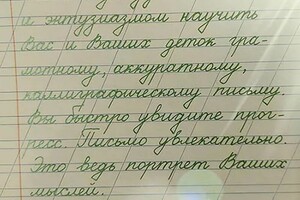 и энтузиазмом научить
Вас и Ваших деток гра-
мотному, аккуратному,
каллиграфическому письму.
Вы быстро увидите прог-
ресс. Письмо увлекательно.
Это ведь портрет Ваших
мыслей.